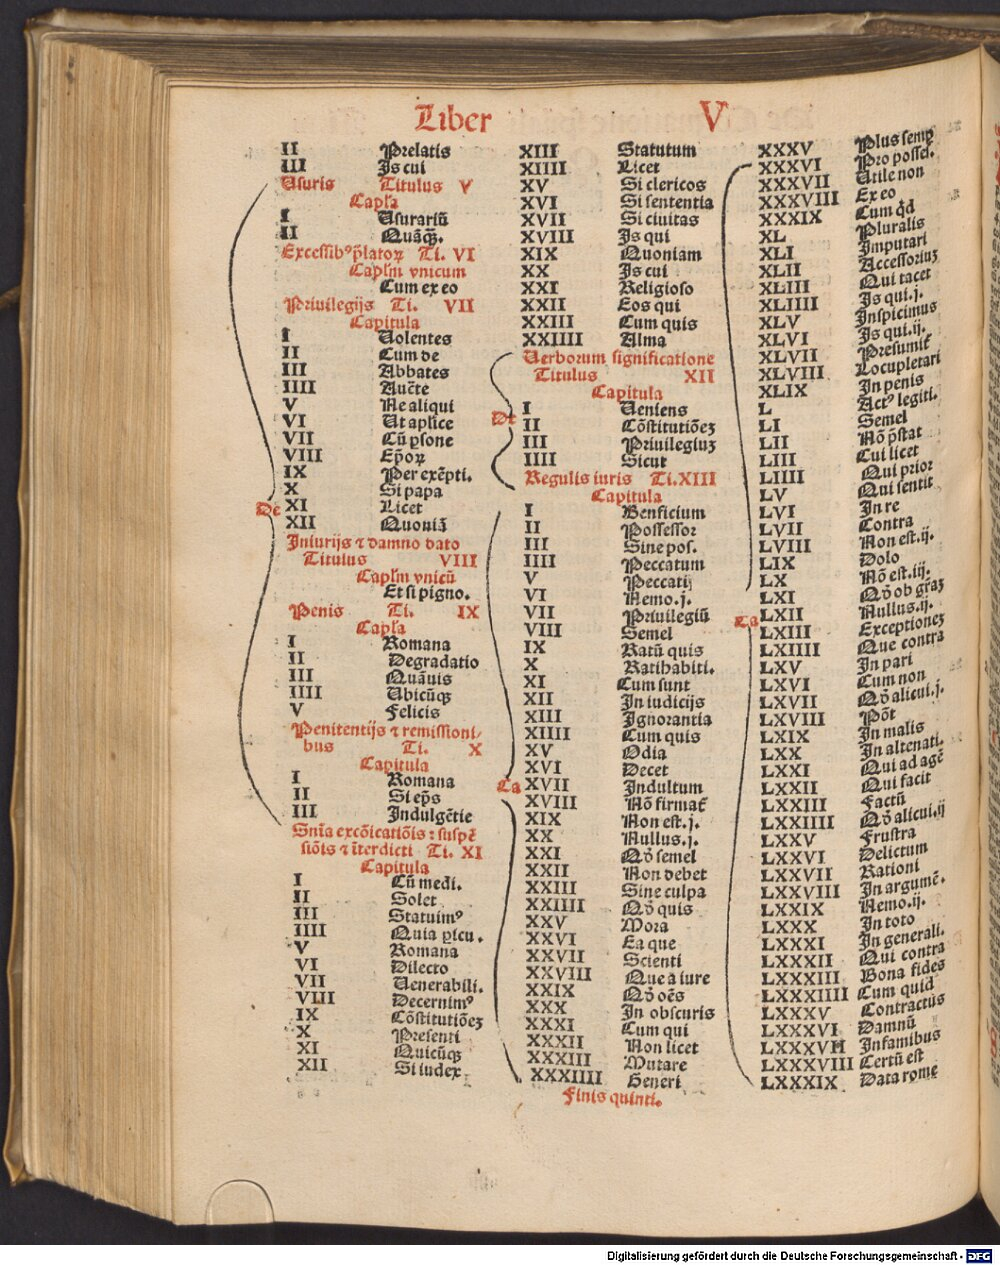 Liber V
II Prelatis
III Is cui
Usuris Titulus V
Capl'a
I Usurariū
II Quāqȝ.
Excessibꝰ p̄latoꝝ Ti. VI
Capl'm vnicum
Cum ex eo
Priuilegijs Ti. VII
Capitula
I Uolentes
II Cum de
III Abbates
IIII Auc̄te
V Ne aliqui
VI Ut aplice
VII Cū psone
VIII Ep̄oꝝ
IX Per exēpti.
X Si papa
De XI Licet
XII Quoniā
Iniurijs ⁊ damno dato
Titulus VIII
Capl'm vnicū
Et si pigno.
Penis Ti. IX
Capl'a
I Romana
II Degradatio
III Quāuis
IIII Ubicūqȝ
V Felicis
Penitentijs ⁊ remissioni⸗
bus Ti. X
Capitula
I Romana
II Si ep̄s
III Indulgētie
Sn̄ia excōicatiōis : suspē
siōis ⁊ īterdicti Ti. XI
Capitula
I Cū medi.
II Solet
III Statuimꝰ
IIII Quia picu.
V Romana
VI Dilecto
VII Uenerabili.
VIII Decernimꝰ
IX Cōstitutiōeȝ
X Presenti
XI Quicūqȝ
XII Si iudex
XIII Statutum
XIIII Licet
XV Si clericos
XVI Si sententia
XVII Si ciuitas
XVIII Is qui
XIX Quoniam
XX Is cui
XXI Religioso
XXII Eos qui
XXIII Cum quis
XXIIII Alma
Uerborum significatione
Titulus XII
Capitula
De I Ueniens
II Cōstitutiōeȝ
III Priuilegiuȝ
IIII Sicut
Regulis iuris Ti. XIII
Capitula
I Benficium
II Possessor
III Sine pos.
IIII Peccatum
V Peccati
VI Nemo .j.
VII Priuilegiū
VIII Semel
IX Ratū quis
X Ratihabiti.
XI Cum sunt
XII In iudicijs
XIII Ignorantia
XIIII Cum quis
XV Odia
XVI Decet
Ca XVII Indultum
XVIII Nō firmat̄
XIX Non est .j.
XX Nullus .j.
XXI Qđ semel
XXII Non debet
XXIII Sine culpa
XXIIII Qđ quis
XXV Mora
XXVI Ea que
XXVII Scienti
XXVIII Que a iure
XXIX Qđ oēs
XXX In obscuris
XXXI Cum qui
XXXII Non licet
XXXIII Mutare
XXXIIII Generi
Finis quinti.
XXXV Plus semp
XXXVI Pro posses.
XXXVII Utile non
XXXVIII Ex eo
XXXIX Cum qđ
XL Pluralis
XLI Imputari
XLII Accessoriuȝ
XLIII Qui tacet
XLIIII Is qui .j.
XLV Inspicimus
XLVI Is qui .ij.
XLVII Presumit̄
XLVIII Locupletari
XLIX In penis
L Actꝰ legiti.
LI Semel
LII Nō p̄stat
LIII Cui licet
LIIII Qui prior
LV Qui sentit
LVI In re
LVII Contra
LVIII Non est .ij.
LIX Dolo
LX Nō est .iij.
LXI Qđ ob gr̄aȝ
Ca LXII Nullus .ij.
LXIII Exceptioneȝ
LXIIII Que contra
LXV In pari
LXVI Cum non
LXVII Qđ alicui .j.
LXVIII Pōt
LXIX In malis
LXX In altenati.
LXXI Qui ad agē
LXXII Qui facit
LXXIII Factū
LXXIIII Qđ alicui .ij
LXXV Frustra
LXXVI Delictum
LXXVII Rationi
LXXVIII In argumē.
LXXIX Nemo .ij.
LXXX In toto
LXXXI In generali.
LXXXII Qui contra
LXXXIII Bona fides
LXXXIIII Cum quid
LXXXV Contractus
LXXXVI Damnū
LXXXVII Infamibus
LXXXVIII Certū est
LXXXIX Data rome
Digitalisierung gefördert durch die Deutsche Forschungsgemeinschaft - DFG